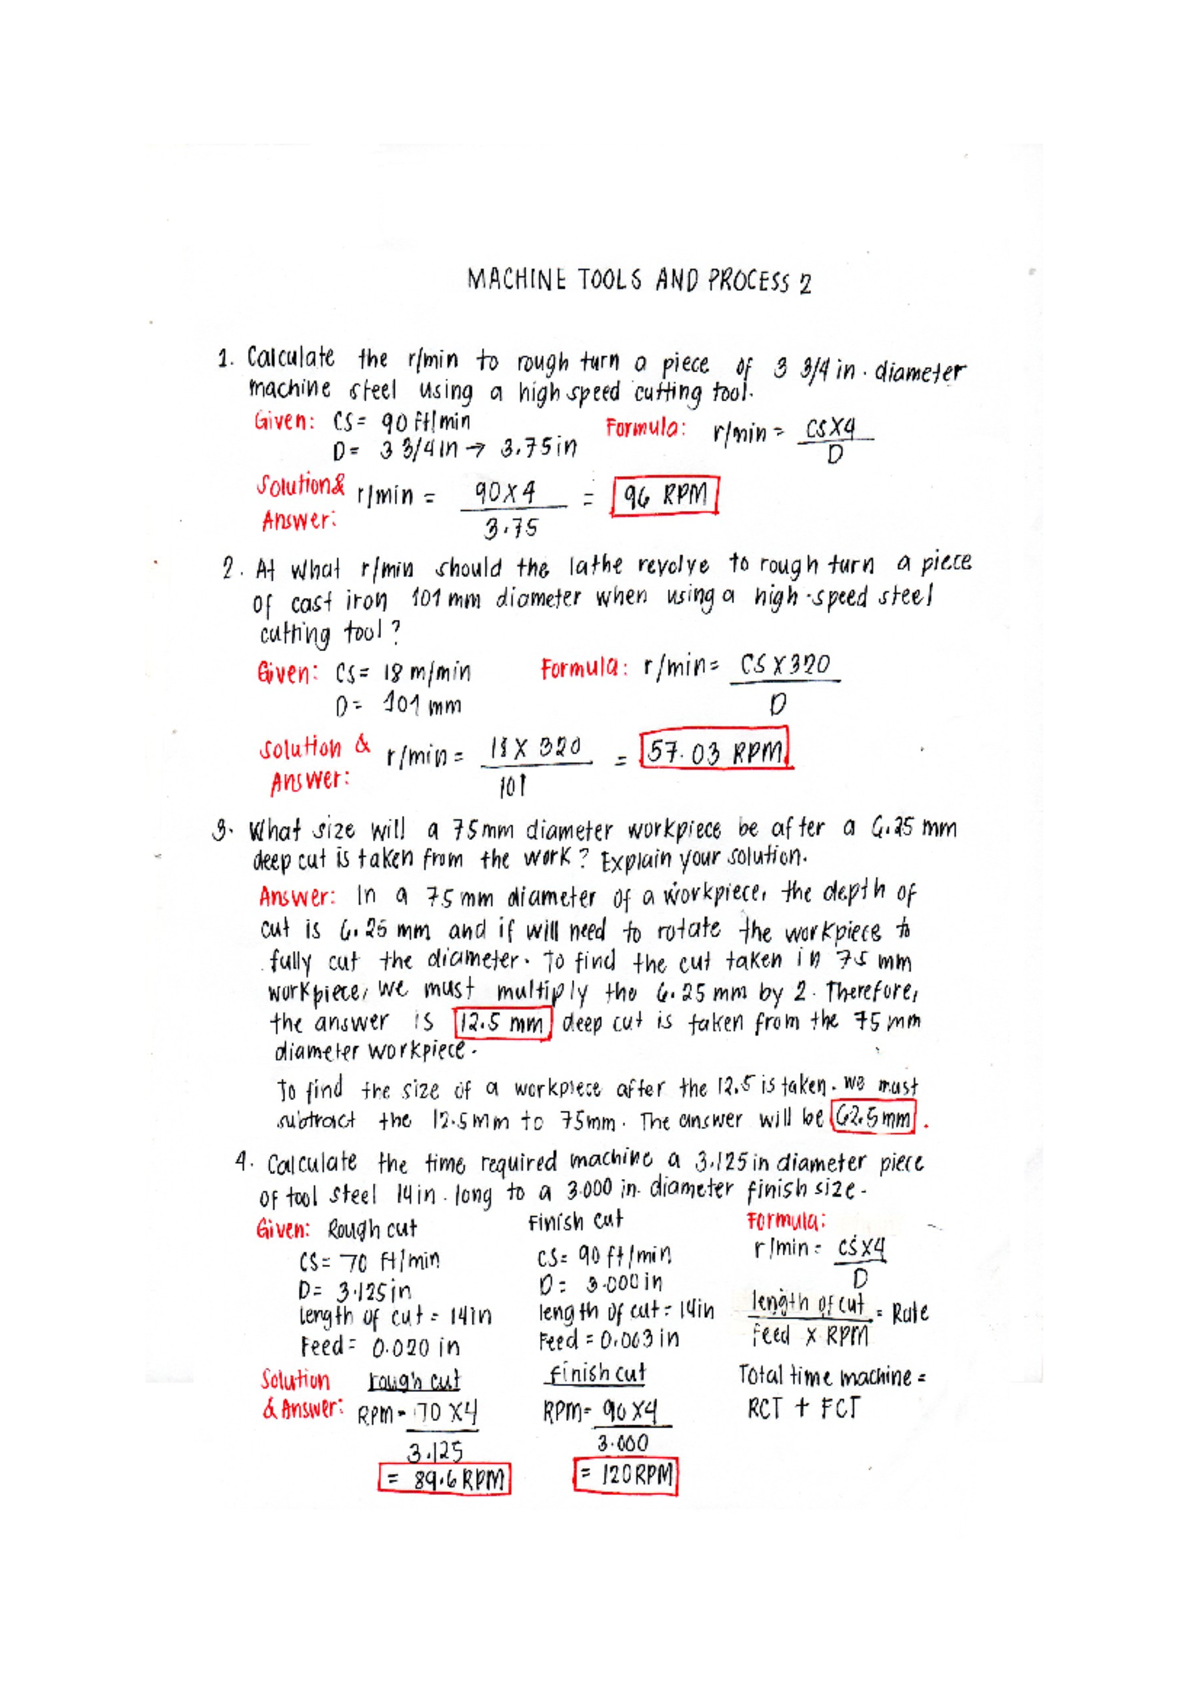 MACHINE TOOLS AND PROCESS 2
1. Calculate the r/min to rough turn a piece of 3 3/4 in. diameter
machine steel using a high speed cutting tool.
Given: CS= 90 ft/min Formula: r/min = CSX4
D= 3 3/4 in → 3.75 in D
Solution& r/min = 90X4 = 96 RPM
Answer: 3.75
2. At what r/min should the lathe revolve to rough turn a piece
of cast iron 101 mm diameter when using a high-speed steel
cutting tool?
Given: CS= 18 m/min Formula: r/min= CS X 320
D= 101 mm D
Solution & r/min = 18 X 320 = 57.03 RPM
Answer: 101
3. What size will a 75mm diameter workpiece be after a 6.25 mm
deep cut is taken from the work? Explain your solution.
Answer: In a 75 mm diameter of a workpiece, the depth of
cut is 6.25 mm and if will need to rotate the workpiece to
fully cut the diameter. To find the cut taken in 75 mm
workpiece, we must multiply the 6.25 mm by 2. Therefore,
the answer is 12.5 mm deep cut is taken from the 75 mm
diameter workpiece.
To find the size of a workpiece after the 12.5 is taken. we must
subtract the 12.5mm to 75mm. The answer will be 62.5mm.
4. Calculate the time required machine a 3.125 in diameter piece
of tool steel 14 in. long to a 3.000 in. diameter finish size.
Given: Rough cut Finish cut Formula:
CS= 70 ft/min CS= 90 ft/min r/min = CSX4
D= 3.125in D= 3.000 in D
length of cut = 14in length of cut = 14in length of cut = Rule
Feed= 0.020 in Feed = 0.003 in feed X RPM
Solution rough cut finish cut Total time machine =
& Answer: RPM= 70 X4 RPM= 90 X4 RCT + FCT
3.125 3.000
= 89.6 RPM = 120 RPM